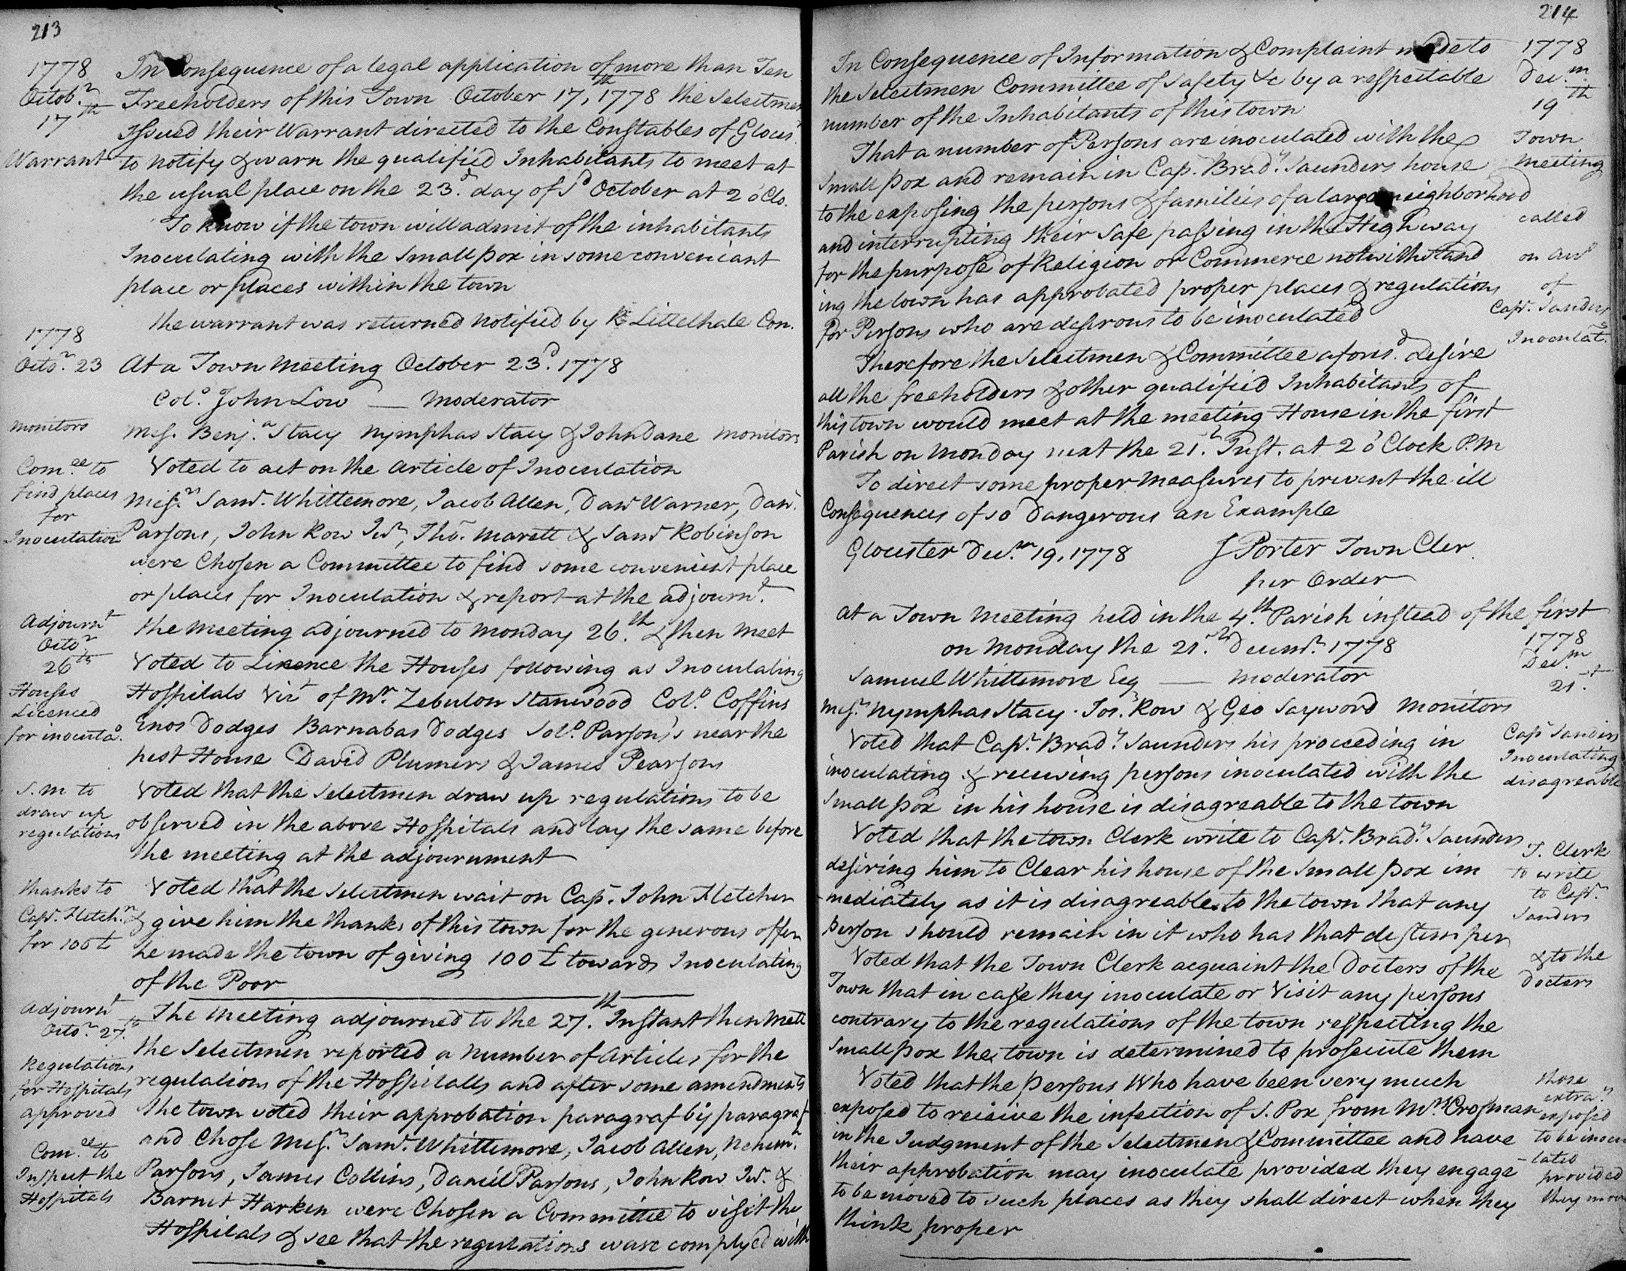 213
1778
Octob.r
17th
Warrant
In Consequence of a legal application of more than Ten
Freeholders of this Town October 17th, 1778 the Selectmen
Issued their Warrant directed to the Constables of Glocesr
to notify & warn the qualified Inhabitants to meet at
the usual place on the 23.d day of Sd October at 2 o'Clo.
To know if the town will admit of the inhabitants
Inoculating with the Small pox in some conveniant
place or places within the town
the warrant was returned notified by Littelhale Con.
1778
Octo.r 23
At a Town Meeting October 23d. 1778
Col.o John Low — Moderator
monitors
Mess. Benj.a Stacy Nymphas Stacy & John Dane monitors
Com.ee to
find places
for
Inoculation
Voted to act on the Article of Inoculation
Mess.rs Saml. Whittemore, Jacob Allen, Danl Warner, Danl.
Parsons, John Row Jur, Tho.s Marett & Saml Robinson
were Chosen a Committee to find some convenient place
or places for Inoculation & report at the adjournt.
Adjournt
Octo.r
26th
the meeting adjourned to Monday 26.th & then meet
Voted to Licence the Houses following as Inoculating
Houses
Licenced
for inoculao.
Hospitals Vizt of Mr. Zebulon Stanwood Col.o Coffins
Enos Dodges Barnabas Dodges Sol.o Parsons's near the
pest House David Plumers & James Pearsons
S. m to
draw up
regulations
Voted that the Selectmen draw up regulations to be
observed in the above Hospitals and lay the same before
the meeting at the adjournment
thanks to
Capt. Fletch.r
for 100 £
Voted that the Selectmen wait on Capt. John Fletcher
& give him the thanks of this town for the generous offer
he made the town of giving 100 £ towards Inoculating
of the Poor
Adjournt
Octo.r 27.th
The Meeting adjourned to the 27.th Instant then mett
the Selectmen reported a number of Articles for the
Regulations
for Hospitals
approved
regulations of the Hospitalls and after some amendments
the town voted their approbation paragraf by paragraf
Com.ee to
Inspect the
Hospitals
and Chose Mess.rs Saml. Whittemore, Jacob Allen, Nehem.h
Parsons, James Collins, Daniel Parsons, John Row Jur. &
Barnet Harkin were Chosen a Committee to visit the
Hospitals & see that the regulations ware complyed with
214
1778
Decm
19th
Town
meeting
called
on acct
of
Capt. Sanders
Inoculat.g
In Consequence of Information & Complaint made to
the Selectmen Committee of Safety &c by a respectable
number of the Inhabitants of this town
That a number of Persons are inoculated with the
Small pox and remain in Capt. Brad.y Saunders house
to the exposing the persons & families of a large neighborhood
and interrupting their Safe passing in the Highway
for the purpose of Religion or Commerce notwithstand
ing the town has approbated proper places & regulations
for Persons who are desirous to be inoculated
Therefore the Selectmen & Committee aforsd. desire
all the freeholders & other qualified Inhabitants of
this town would meet at the meeting House in the first
Parish on Monday next the 21.st Inst. at 2 o'Clock P.M
To direct some proper Measures to prevent the ill
Consequences of so Dangerous an Example
Glocester Decm 19, 1778 J Porter Town Cler.
per Order
At a Town Meeting held in the 4.th Parish instead of the first
on Monday the 21.st Decemr. 1778
1778
Decm
21.st
Samuel Whittemore Esq — Moderator
Mess.rs Nymphas Stacy Jos. Row & Geo Sayword Monitors
Capt Sanders
Inoculating
disagreable
Voted that Capt. Brad.y Saunders his proceeding in
inoculating & receiving persons inoculated with the
Small pox in his house is disagreable to the town
T. Clerk
to write
to Capt.
Sanders
Voted that the town Clerk write to Capt. Brad.y Saunders
desiring him to Clear his house of the Small pox im
mediately as it is disagreable to the town that any
person should remain in it who has that destemper
& to the
Docters
Voted that the Town Clerk acquaint the Docters of the
Town that in case they inoculate or Visit any persons
contrary to the regulations of the town respecting the
Small pox the town is determined to prosecute them
those
extra.y
exposed
to be inocu
lated
provided
they move
Voted that the Persons Who have been very much
exposed to receive the infection of S. Pox from Mrs Crosman
in the Judgment of the Selectmen & Committee and have
their approbation may inoculate provided they engage
to be moved to such places as they shall direct when they
think proper